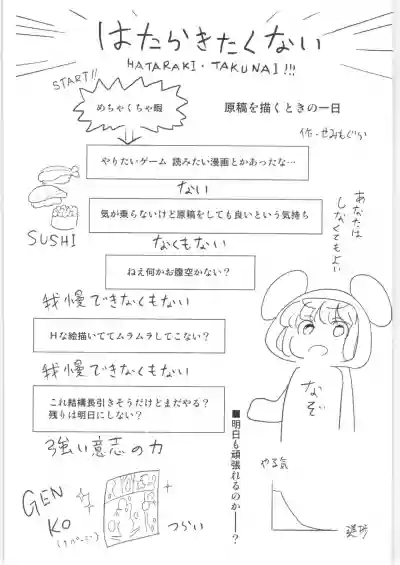 はたらきたくない
HATARAKI・TAKUNAI!!!
START!!
めちゃくちゃ暇
原稿を描くときの一日
作・せみもぐら
やりたいゲーム 読みたい漫画とかあったな…
ない
気が乗らないけど原稿をしても良いという気持ち
SUSHI
あなたは
しなくてもよい
なくもない
ねえ何かお腹空かない？
我慢できなくもない
Hな絵描いててムラムラしてこない？
我慢できなくもない
なぞ
これ結構長引きそうだけどまだやる？
残りは明日にしない？
強い意志の力
■明日も頑張れるのか――？
やる気
進捗
GEN
KO
つらい